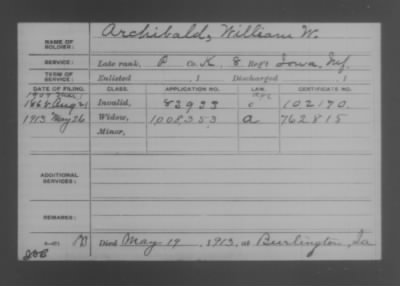 NAME OF SOLDIER: Archibald, William W.
SERVICE: Late rank, P Co. K, 8 Reg't Iowa Inf.
TERM OF SERVICE: Enlisted , 1 Discharged , 1
DATE OF FILING. CLASS. APPLICATION NO. LAW. CERTIFICATE NO.
1868 Aug 21 Invalid, 83933 c 102170
1913 May 26 Widow, 1008353 a 762815
Minor,
ADDITIONAL SERVICES:
REMARKS:
Died May 19, 1913, at Burlington, Ia